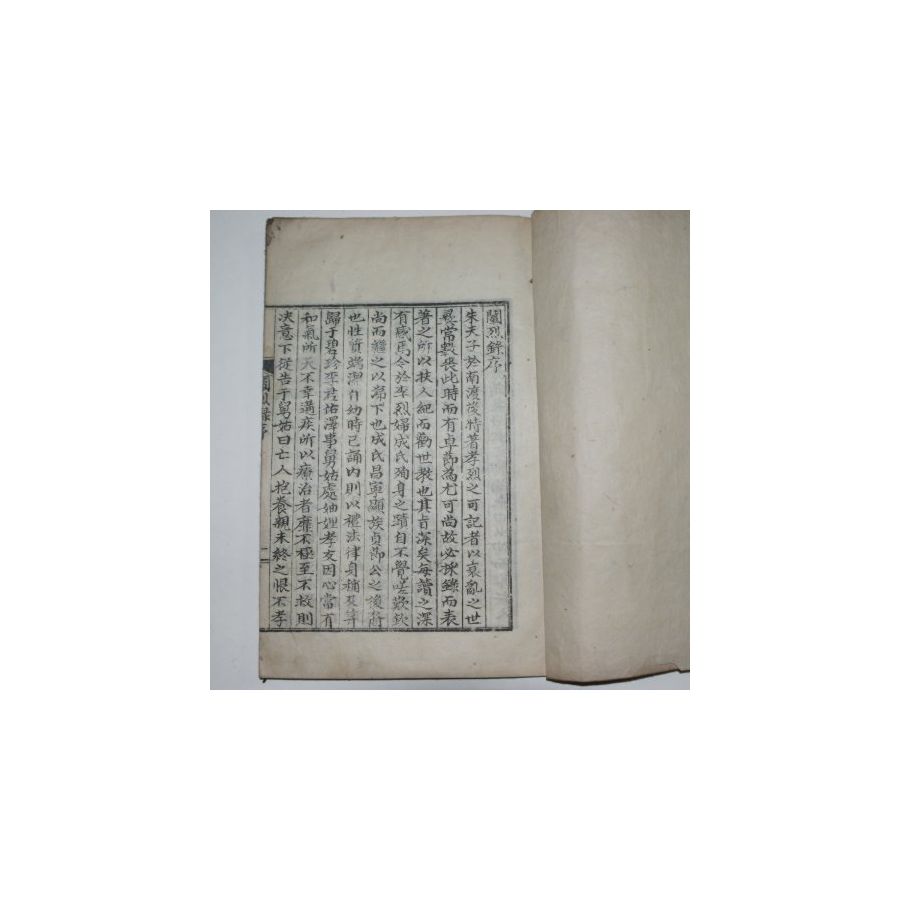 閫烈錄序
朱夫子於南渡後特著孝烈之可記者以衰亂之世
彛常斁喪此時而有卓節為尤可尚故必採錄而表
著之所以扶人紀而勸世教也其旨深矣每讀之深
有感焉今於李烈婦成氏殉身之蹟自不覺嗟歎欽
尚而繼之以涕下也成氏昌寧顯族貞節公之後裔
也性質端潔自幼時已誦內則以禮法律身稱及笄
歸于碧珍李君祐澤事舅姑處妯娌孝友因心當有
和氣所天不幸遘疾所以療治者靡不極至不救則
决意下從告于舅姑曰亡人抱養親未終之恨不孝